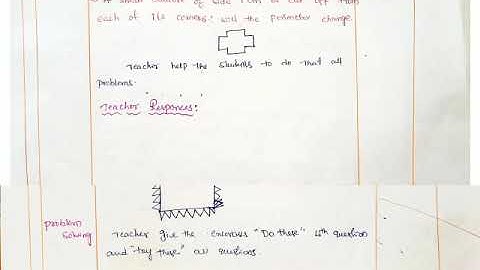 A small square of side 1 cm is cut off from
each of its corners? will the perimeter change
Teacher help the students to do that all
problems.
Teacher Responces:
problem
solving
Teacher give the exercises "Do these" 4th question
and "try these" all questions.